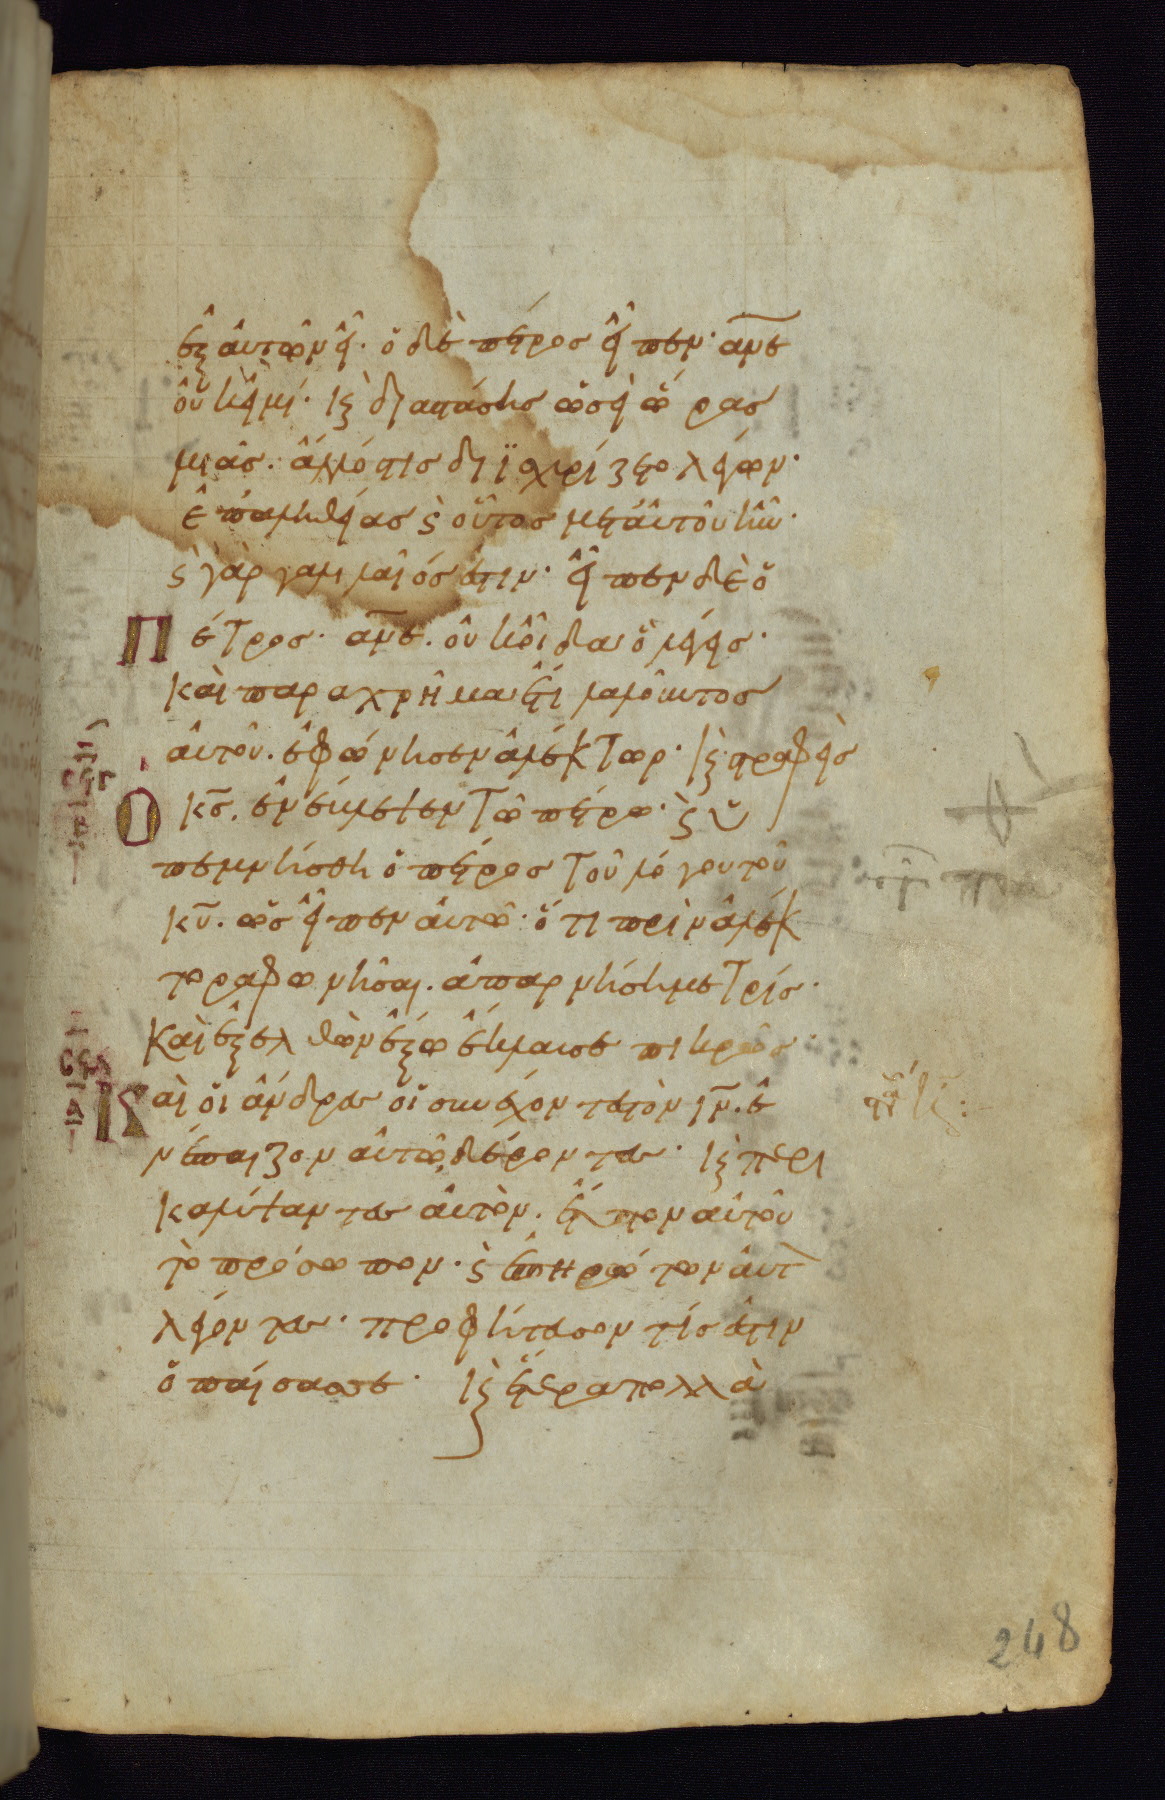 ἐξ αὐτῶν εἶ. ὁ δὲ πέτρος εἶπεν. ἄνε
οὐκ εἰμί. κ(αὶ) διαστάσης ὡσεὶ ὥρας
μιᾶς. ἄλλός τις διϊσχυρίζετο λέγων.
ἐπ ἀληθείας κ(αὶ) οὗτος μετ αὐτοῦ ἦν.
κ(αὶ) γὰρ γαλιλαῖός ἐστιν. εἶπεν δὲ ὁ
πέτρος. ἄνε. οὐκ οἶδα ὃ λέγεις.
καὶ παραχρῆμα ἔτι λαλοῦντος
αὐτοῦ. ἐφώνησεν ἀλέκτωρ. κ(αὶ) στραφεὶς
ὁ κς. ἐνέβλεψεν τῶ πέτρω. κ(αὶ) ὑ
πεμνήσθη ὁ πέτρος τοῦ λόγου τοῦ
κυ. ὡς εἶπεν αὐτῶ. ὅτι πρὶν ἀλέκ
τορα φωνῆσαι. ἀπαρνήση με τρίς.
καὶ ἐξελθὼν ἔξω ἔκλαυσε πικρῶς
Καὶ οἱ ἄνδρες οἱ συνέχοντες τὸν ιν. ἐ
νέπαιζον αὐτῶ, δέροντες. κ(αὶ) περι
καλύψαντες αὐτὸν. ἔτυπτον αὐτοῦ
τὸ πρόσωπον. κ(αὶ) ἐπηρώτων αὐτ
λέγοντες. προφήτευσον τίς ἐστιν
ὁ παίσας σε. κ(αὶ) ἕτερα πολλὰ
248